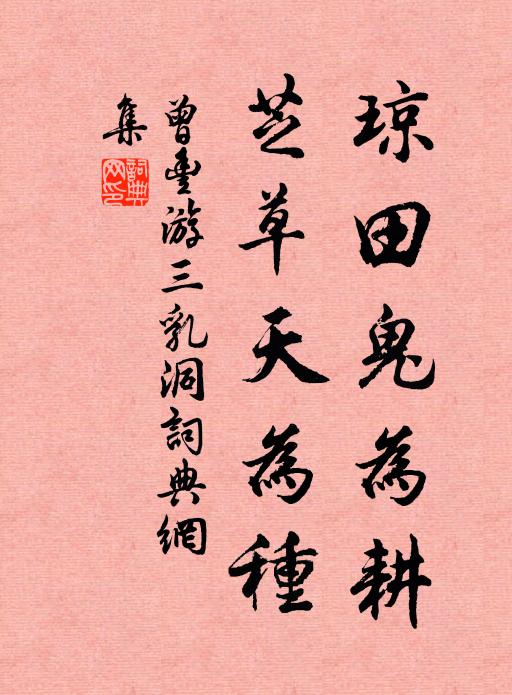 琼田鬼為耕
芝草天為種
曾豐游三乳洞詞典網
集
詞典
网印